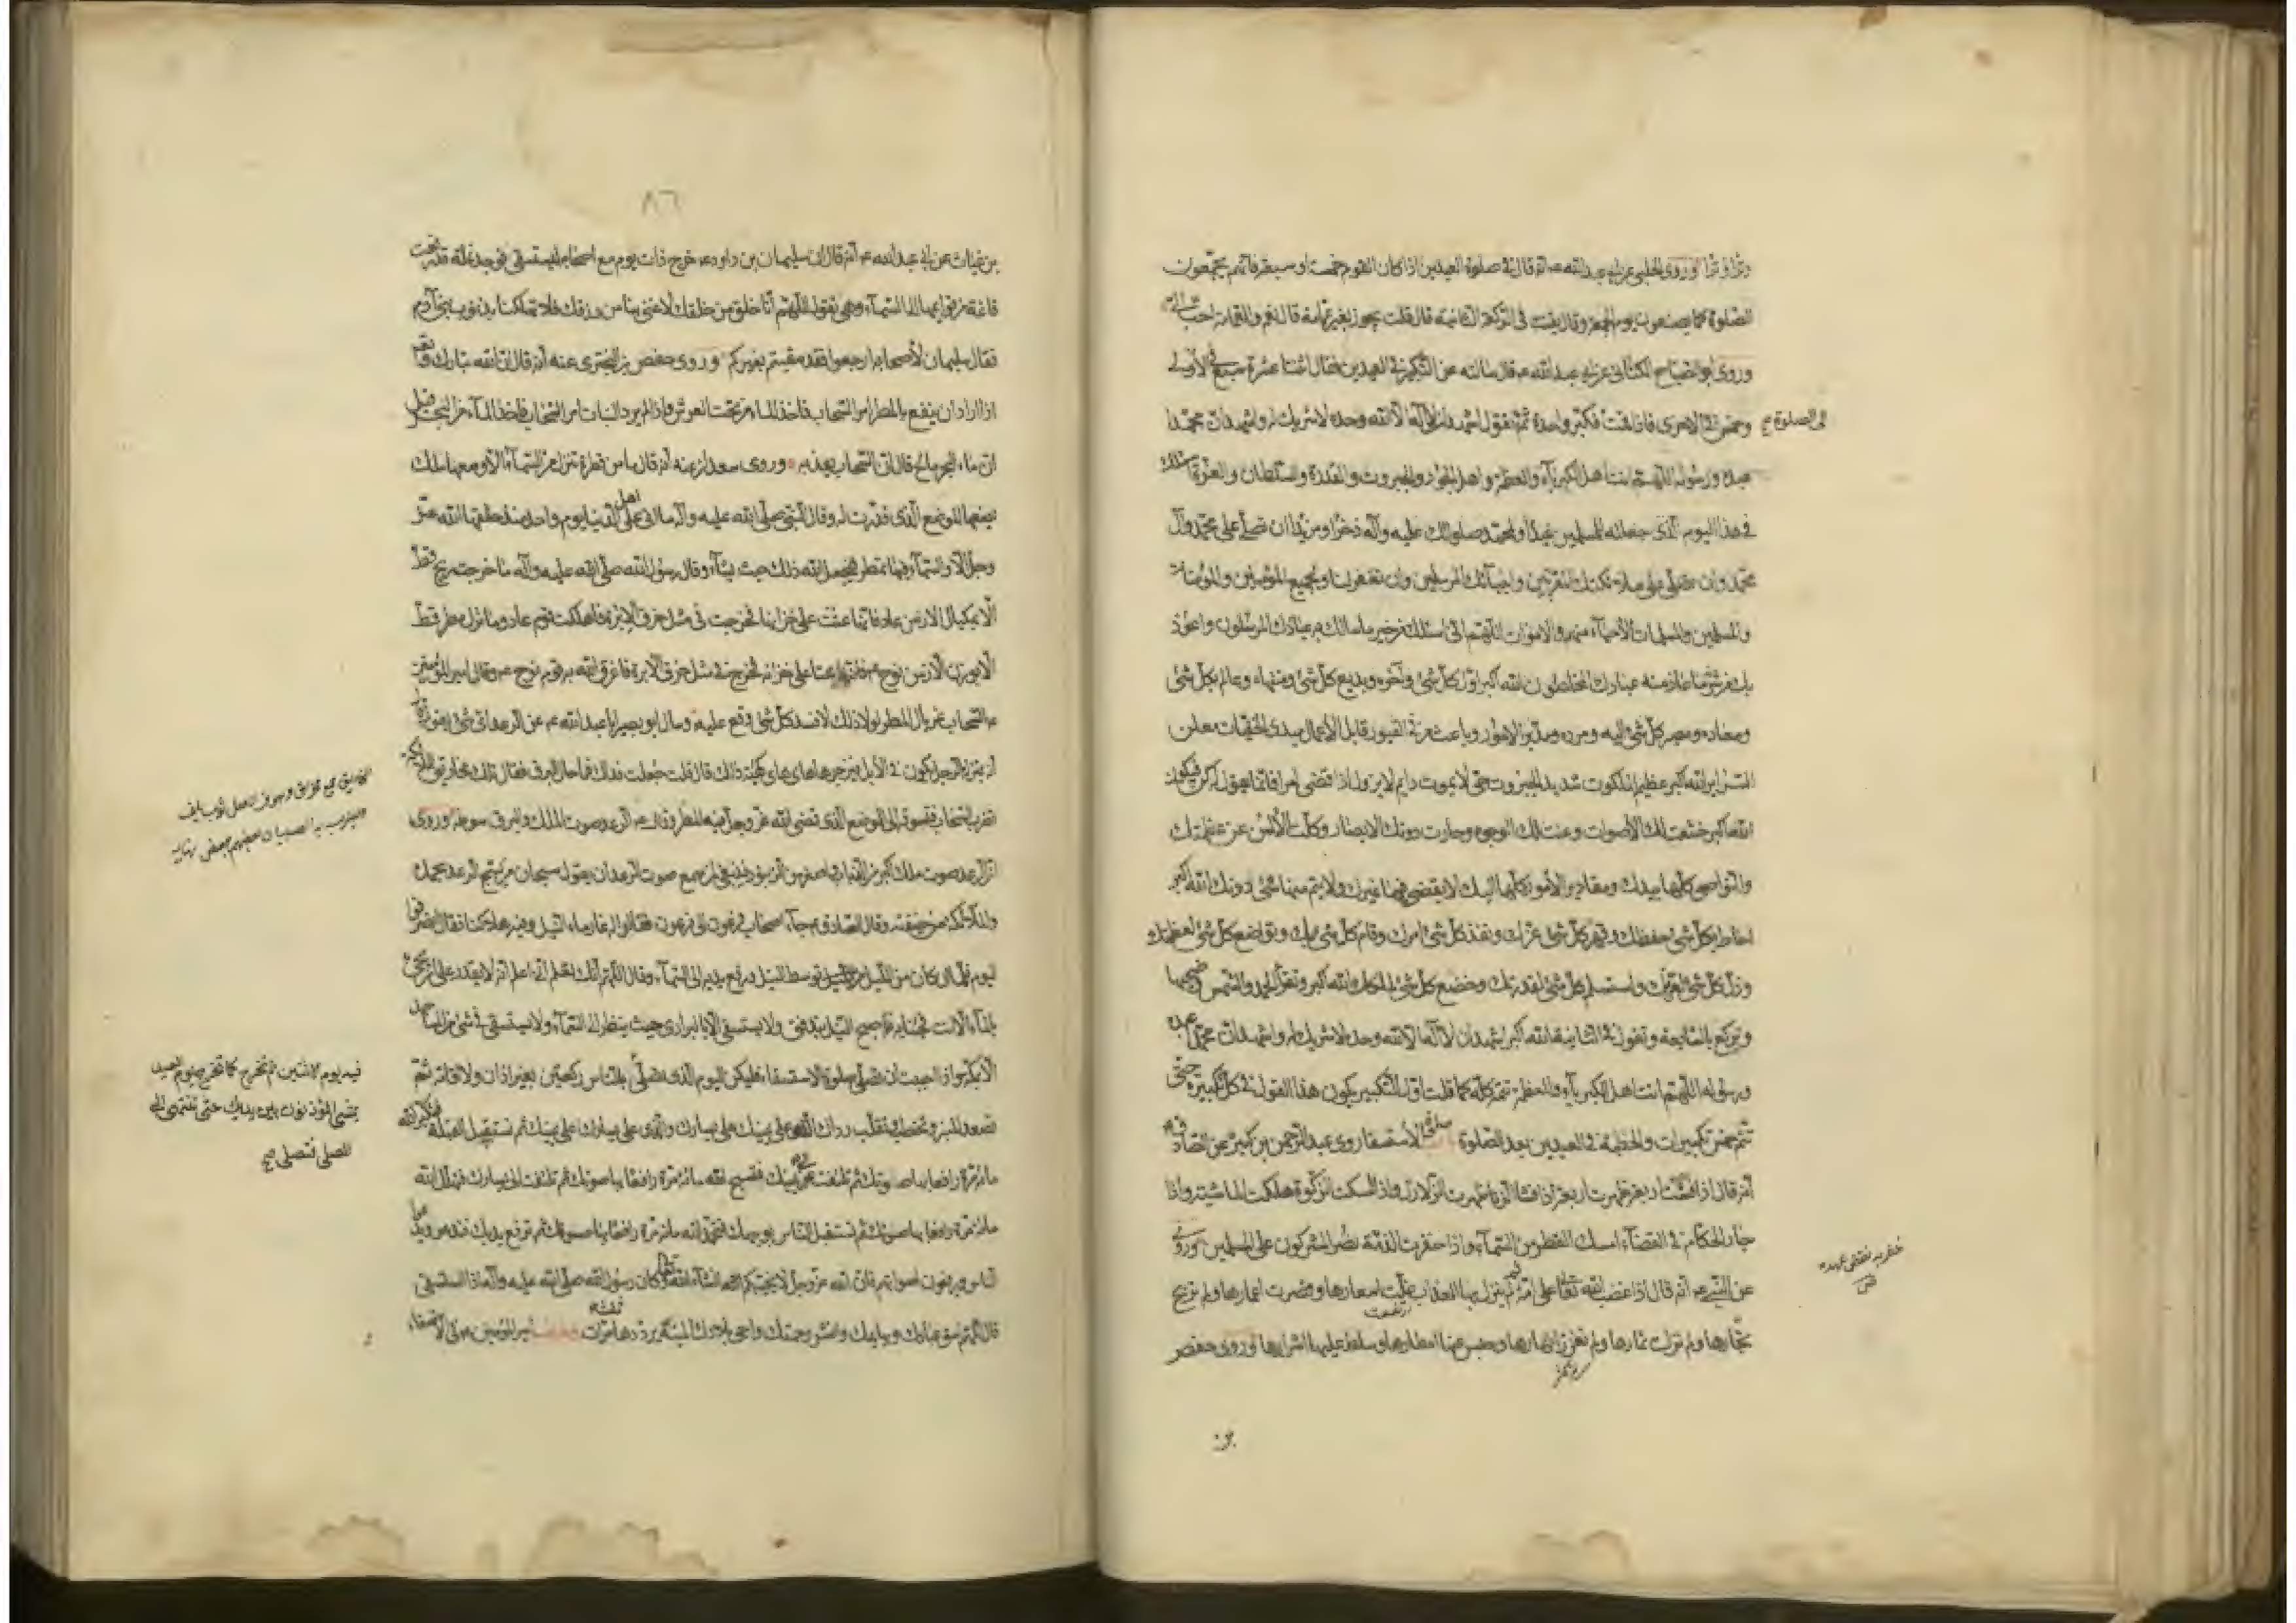 وترا وترا وروى الحلبي عن ابي عبد الله ع انه قال في صلوة العيدين اذا كان القوم خمسة او سبعة فانهم يجمعون
الصلوة كما يصنعون يوم الجمعة وقال يقنت في الركعة الثانية قال قلت يجوز بغير عمامة قال نعم والعمامة احب الي
وروى ابو الصباح الكناني عن ابي عبد الله ع قال سالته عن التكبير في العيدين فقال اثنتا عشرة سبع في الاولى
وخمس في الاخرى فاذا قمت فكبر واحدة ثم تقول اشهد ان لا اله الا الله وحده لا شريك له واشهد ان محمدا
الى الصلوة صح
عبده ورسوله اللهم انت اهل الكبرياء والعظمة واهل الجود والجبروت والقدرة والسلطان والعزة اسئلك
في هذا اليوم الذي جعلته للمسلمين عيدا ولمحمد صلواتك عليه وآله ذخرا ومزيدا ان تصلي على محمد وآل
محمد وان تصلي على ملائكتك المقربين وانبيائك المرسلين وان تغفر لنا ولجميع المؤمنين والمؤمنات
والمسلمين والمسلمات الاحياء منهم والاموات اللهم اني اسئلك من خير ما سالك به عبادك المرسلون واعوذ
بك من شر ما عاذ منه عبادك المخلصون الله اكبر اول كل شئ وآخره وبديع كل شئ ومنتهاه وعالم بكل شئ
ومعاده ومصير كل شئ اليه ومرده ومدبر الامور وباعث من في القبور قابل الاعمال مبدي الخفيات معلن
السراير الله اكبر عظيم الملكوت شديد الجبروت حي لا يموت دايم لا يزول اذا قضى امرا فانما يقول له كن فيكون
الله اكبر خشعت لك الاصوات وعنت لك الوجوه وحارت دونك الابصار وكلت الالسن عن عظمتك
والنواصي كلها بيدك ومقادير الامور كلها اليك لا يقضي فيها غيرك ولا يتم منها شئ دونك الله اكبر
احاط بكل شئ حفظك وقهر كل شئ عزك ونفذ كل شئ امرك وقام كل شئ بك وتواضع كل شئ لعظمتك و
وذل كل شئ لعزتك واستسلم كل شئ لقدرتك وخضع كل شئ لملكك الله اكبر وتقرأ الحمد والشمس وضحيها
وتركع بالسابعة وتقول في الثانية الله اكبر اشهد ان لا اله الا الله وحده لا شريك له واشهد ان محمدا عبده
ورسوله اللهم انت اهل الكبرياء والعظمة تتمه كله كما قلت اول التكبير يكون هذا القول في كل تكبيرة حتى
تتم خمس تكبيرات والخطبة في العيدين بعد الصلوة صلوة الاستسقا روى عبد الرحمن بن كثير عن الصادق ع
انه قال اذا فشت اربعة ظهرت اربعة اذا فشا الزنا ظهرت الزلازل واذا امسكت الزكوة هلكت الماشية واذا
جار الحكام في القضاء امسك القطر من السماء واذا خفرت الذمة نصر المشركون على المسلمين وروي
خفر به نقض عهده
عن النبي ص انه قال اذا غضب الله تعالى على امة ثم لم ينزل بها العذاب غلت اسعارها وقصرت اعمارها ولم تربح
تجارها ولم تزك ثمارها ولم تغزر انهارها وحبس عنها امطارها وسلط عليها اشرارها وروى حفص
بن
٨٦
بن غياث عن ابي عبد الله ع انه قال ان سليمان بن داود ع خرج ذات يوم مع اصحابه ليستسقي فوجد نملة قد رفعت
قائمة من قوائمها الى السماء وهي تقول اللهم انا خلق من خلقك لا غنى بنا من رزقك فلا تهلكنا بذنوب بني آدم
فقال سليمان لاصحابه ارجعوا فقد سقيتم بغيركم وروى حفص بن البختري عنه انه قال ان الله تبارك وتعالى
اذا اراد ان ينفع بالمطر امر السحاب فاخذ الماء من تحت العرش واذا لم يرد النبات امر السحاب فاخذ الماء من البحر قيل
ان ماء البحر مالح قال ان السحاب يعذبه وروى سعدان عنه انه قال ما من قطرة تنزل من السماء الا ومعها ملك
يضعها الموضع الذي قدرت له وقال النبي صلى الله عليه وآله ما اتى على اهل الدنيا يوم واحد منذ خلقها الله عز
وجل الا والسماء فيها تمطر فيجعل الله ذلك حيث يشآء وقال رسول الله صلى الله عليه وآله ما خرجت ريح قط
الا بمكيال الا زمن عاد فانها عتت على خزانها فخرجت في مثل خرق الابرة فاهلكت قوم عاد وما نزل مطر قط
الا بوزن الا زمن نوح ع فانه عتا على خزانه فخرج في مثل خرق الابرة فاغرق الله به قوم نوح ع وقال امير المؤمنين
ع السحاب غربال المطر لولا ذلك لافسد كل شئ وقع عليه وسال ابو بصير ابا عبد الله ع عن الرعد اي شئ يقول قال
انه بمنزلة الرجل يكون في الابل فيزجرها هاي هاي كهيئة ذلك قال قلت جعلت فداك فما حال البرق فقال تلك مخاريق الملائكة
تضرب السحاب فتسوقه الى الموضع الذي قضى الله عز وجل فيه المطر وقال ع الرعد صوت الملك والبرق سوطه وروى
ان الرعد صوت ملك اكبر من الذباب واصغر من الزنبور فينبغي لمن سمع صوت الرعد ان يقول سبحان من يسبح الرعد بحمده
والملائكة من خيفته وقال الصادق ع جاء اصحاب فرعون الى فرعون فقالوا له غار ماء النيل وفيه هلاكنا فقال انصرفوا
اليوم فلما ان كان من الليل توسط النيل ورفع يديه الى السماء وقال اللهم انك تعلم اني اعلم انه لا يقدر على ان يجئ
بالماء الا انت فجئنا به فاصبح النيل يتدفق ولا يستسقى الا بالبراري حيث ينظر الى السماء ولا يستسقى في شئ من المساجد
الا بمكة واذا احببت ان تصلي صلوة الاستسقا فليكن اليوم الذي تصلي بالناس ركعتين بغير اذان ولا اقامة ثم
فيه يوم الاثنين ثم تخرج كما تخرج يوم العيد
يمشي المؤذنون بين يديك حتى تنتهي الى
المصلى فتصلي صح
تصعد المنبر وتخطب وتقلب رداك الذي على يمينك على يسارك والذي على يسارك على يمينك ثم تستقبل القبلة فتكبر الله
مائة مرة رافعا بها صوتك ثم تلتفت عن يمينك فتسبح الله مائة مرة رافعا بها صوتك ثم تلتفت الى يسارك فتهلل الله
مائة مرة رافعا بها صوتك ثم تستقبل الناس بوجهك فتحمد الله مائة مرة رافعا بها صوتك ثم ترفع يديك فتدعو ويدعو
الناس ويرفعون اصواتهم فان الله عز وجل لا يخيبكم ان شاء الله تعالى وكان رسول الله صلى الله عليه وآله اذا استسقى
قال اللهم اسق عبادك وبهايمك وانشر رحمتك واحي بلادك الميتة يرددها مرات امير المؤمنين ع في الاستسقاء